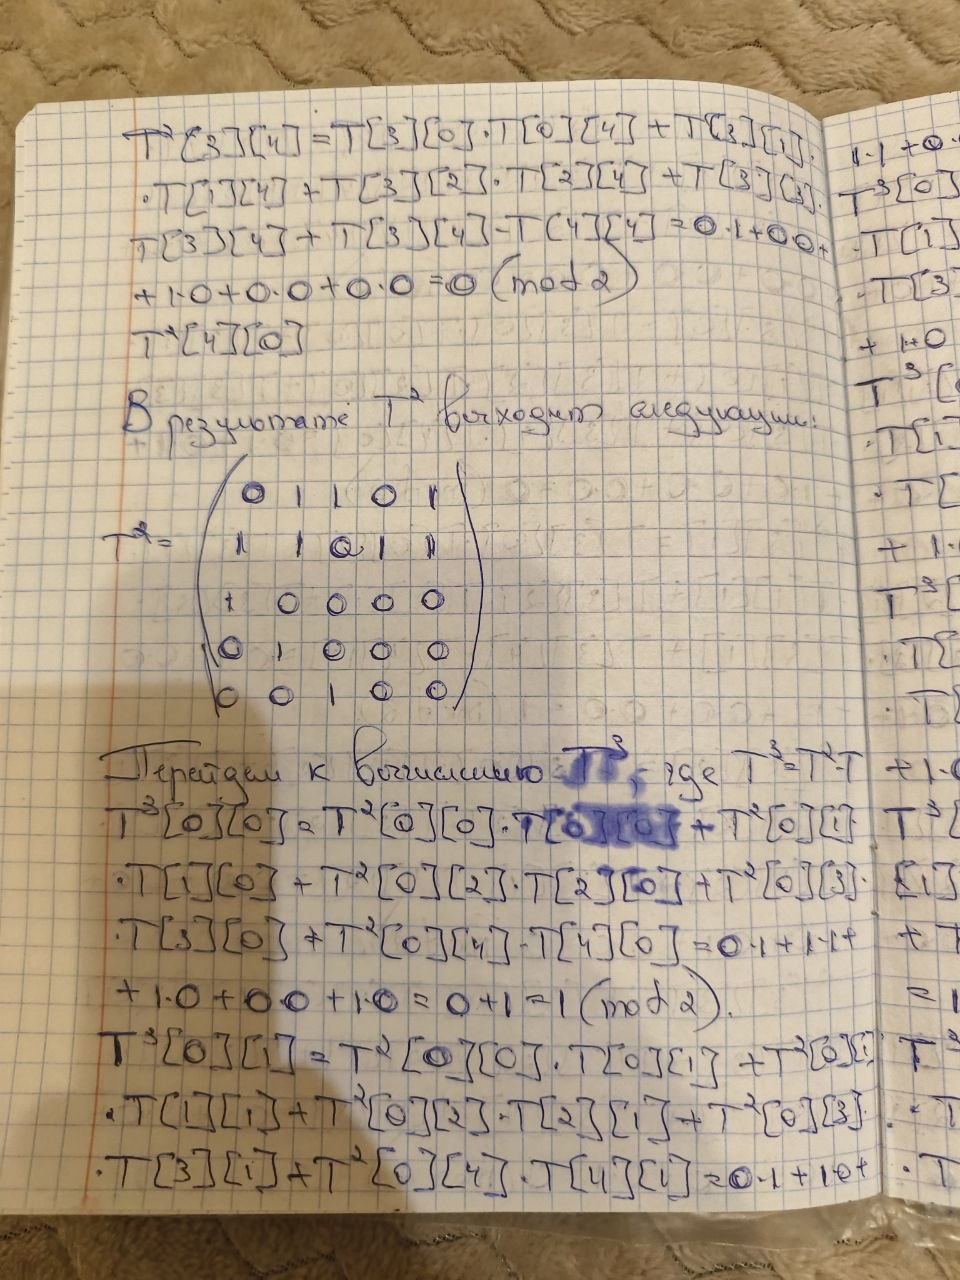 T²[3][4]=T[3][0]·T[0][4]+T[3][1]·
·T[1][4]+T[3][2]·T[2][4]+T[3][3]·
T[3][4]+T[3][4]-T[4][4]=0·1+0·0+
+1·0+0·0+0·0=0(mod 2)
T²[4][0]
В результате T² выходит следующим:
0 1 1 0 1
T²= 1 1 0 1 1
1 0 0 0 0
0 1 0 0 0
0 0 1 0 0
Перейдем к вычислению T³, где T³=T²·T
T³[0][0]=T²[0][0]·T[0][0]+T²[0][1]
·T[1][0]+T²[0][2]·T[2][0]+T²[0][3]·
·T[3][0]+T²[0][4]·T[4][0]=0·1+1·1+
+1·0+0·0+1·0=0+1=1(mod 2).
T³[0][1]=T²[0][0]·T[0][1]+T²[0][1]
·T[1][1]+T²[0][2]·T[2][1]+T²[0][3]·
·T[3][1]+T²[0][4]·T[4][1]=0·1+1·0+
1·1+0·
T³[0]
·T[1]
·T[3]
+1+0
T³[
·T[1]
·T[
+1·
T³[
·T[
·T[
+1·
T³[
[1]
+T
=1
T³
·T
·T